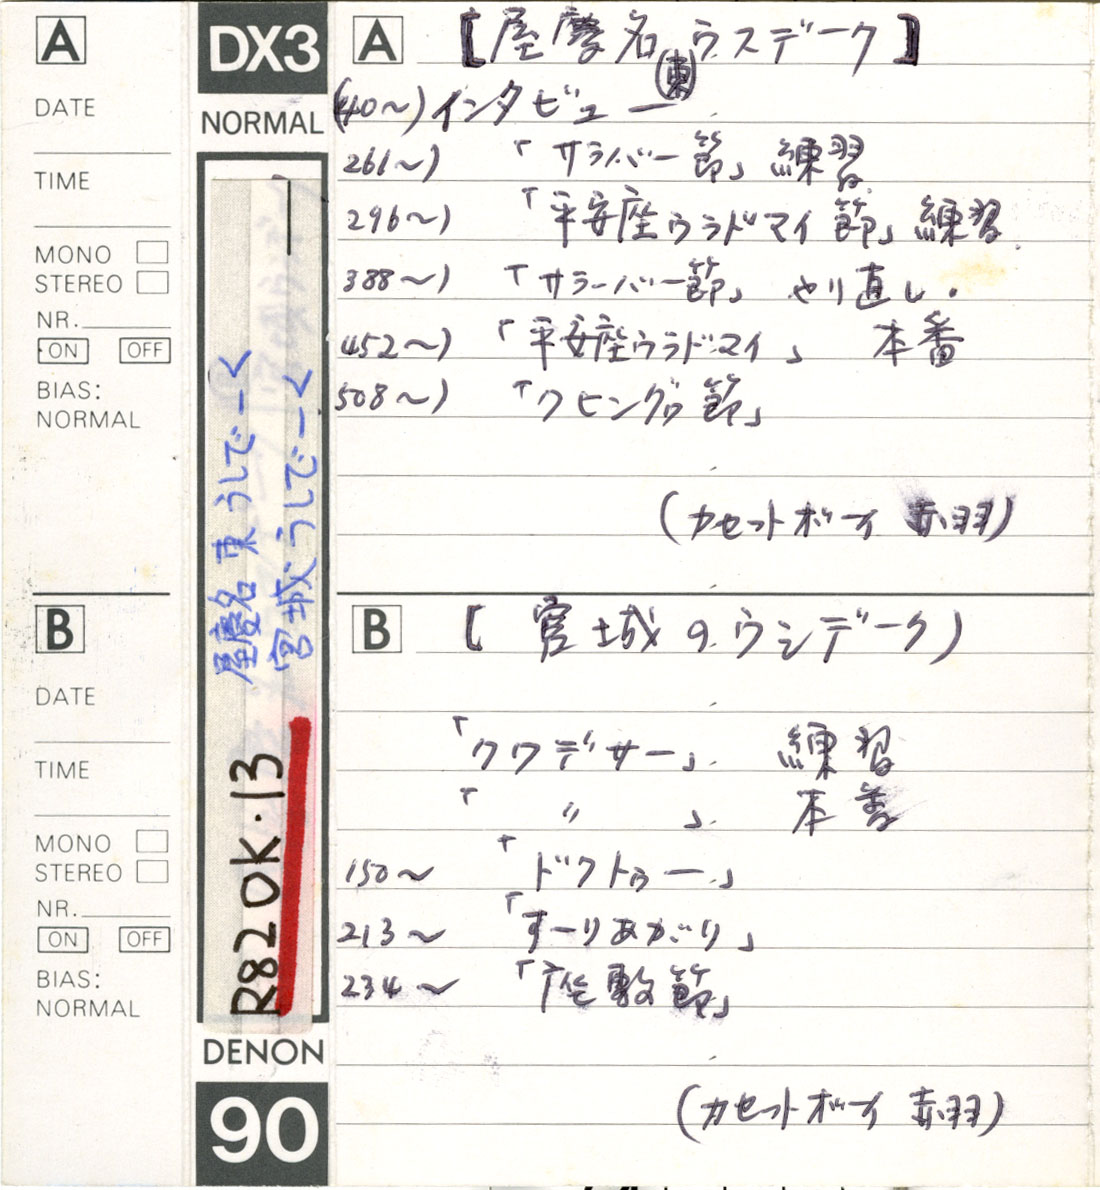 A
DATE
TIME
MONO
STEREO
NR.
ON OFF
BIAS:
NORMAL
B
DATE
TIME
MONO
STEREO
NR.
ON OFF
BIAS:
NORMAL
DX3
NORMAL
屋慶名東うしでーく
宮城うしでーく
R82OK・13
DENON
90
A 【屋慶名(東)ウスデーク】
(40〜) インタビュー
261〜) 「サラバー節」 練習
296〜) 「平安座ウラドマイ節」練習
388〜) 「サラーバー節」 やり直し.
452〜) 「平安座ウラドマイ」 本番
508〜) 「クヒングヮ節」
(カセットボーイ 赤羽)
B [宮城のウシデーク)
「クワデサー」 練習
「 〃 」 本番
150〜 「ドクトゥー」
213〜 「すーりあがり」
234〜 「座敷節」
(カセットボーイ 赤羽)